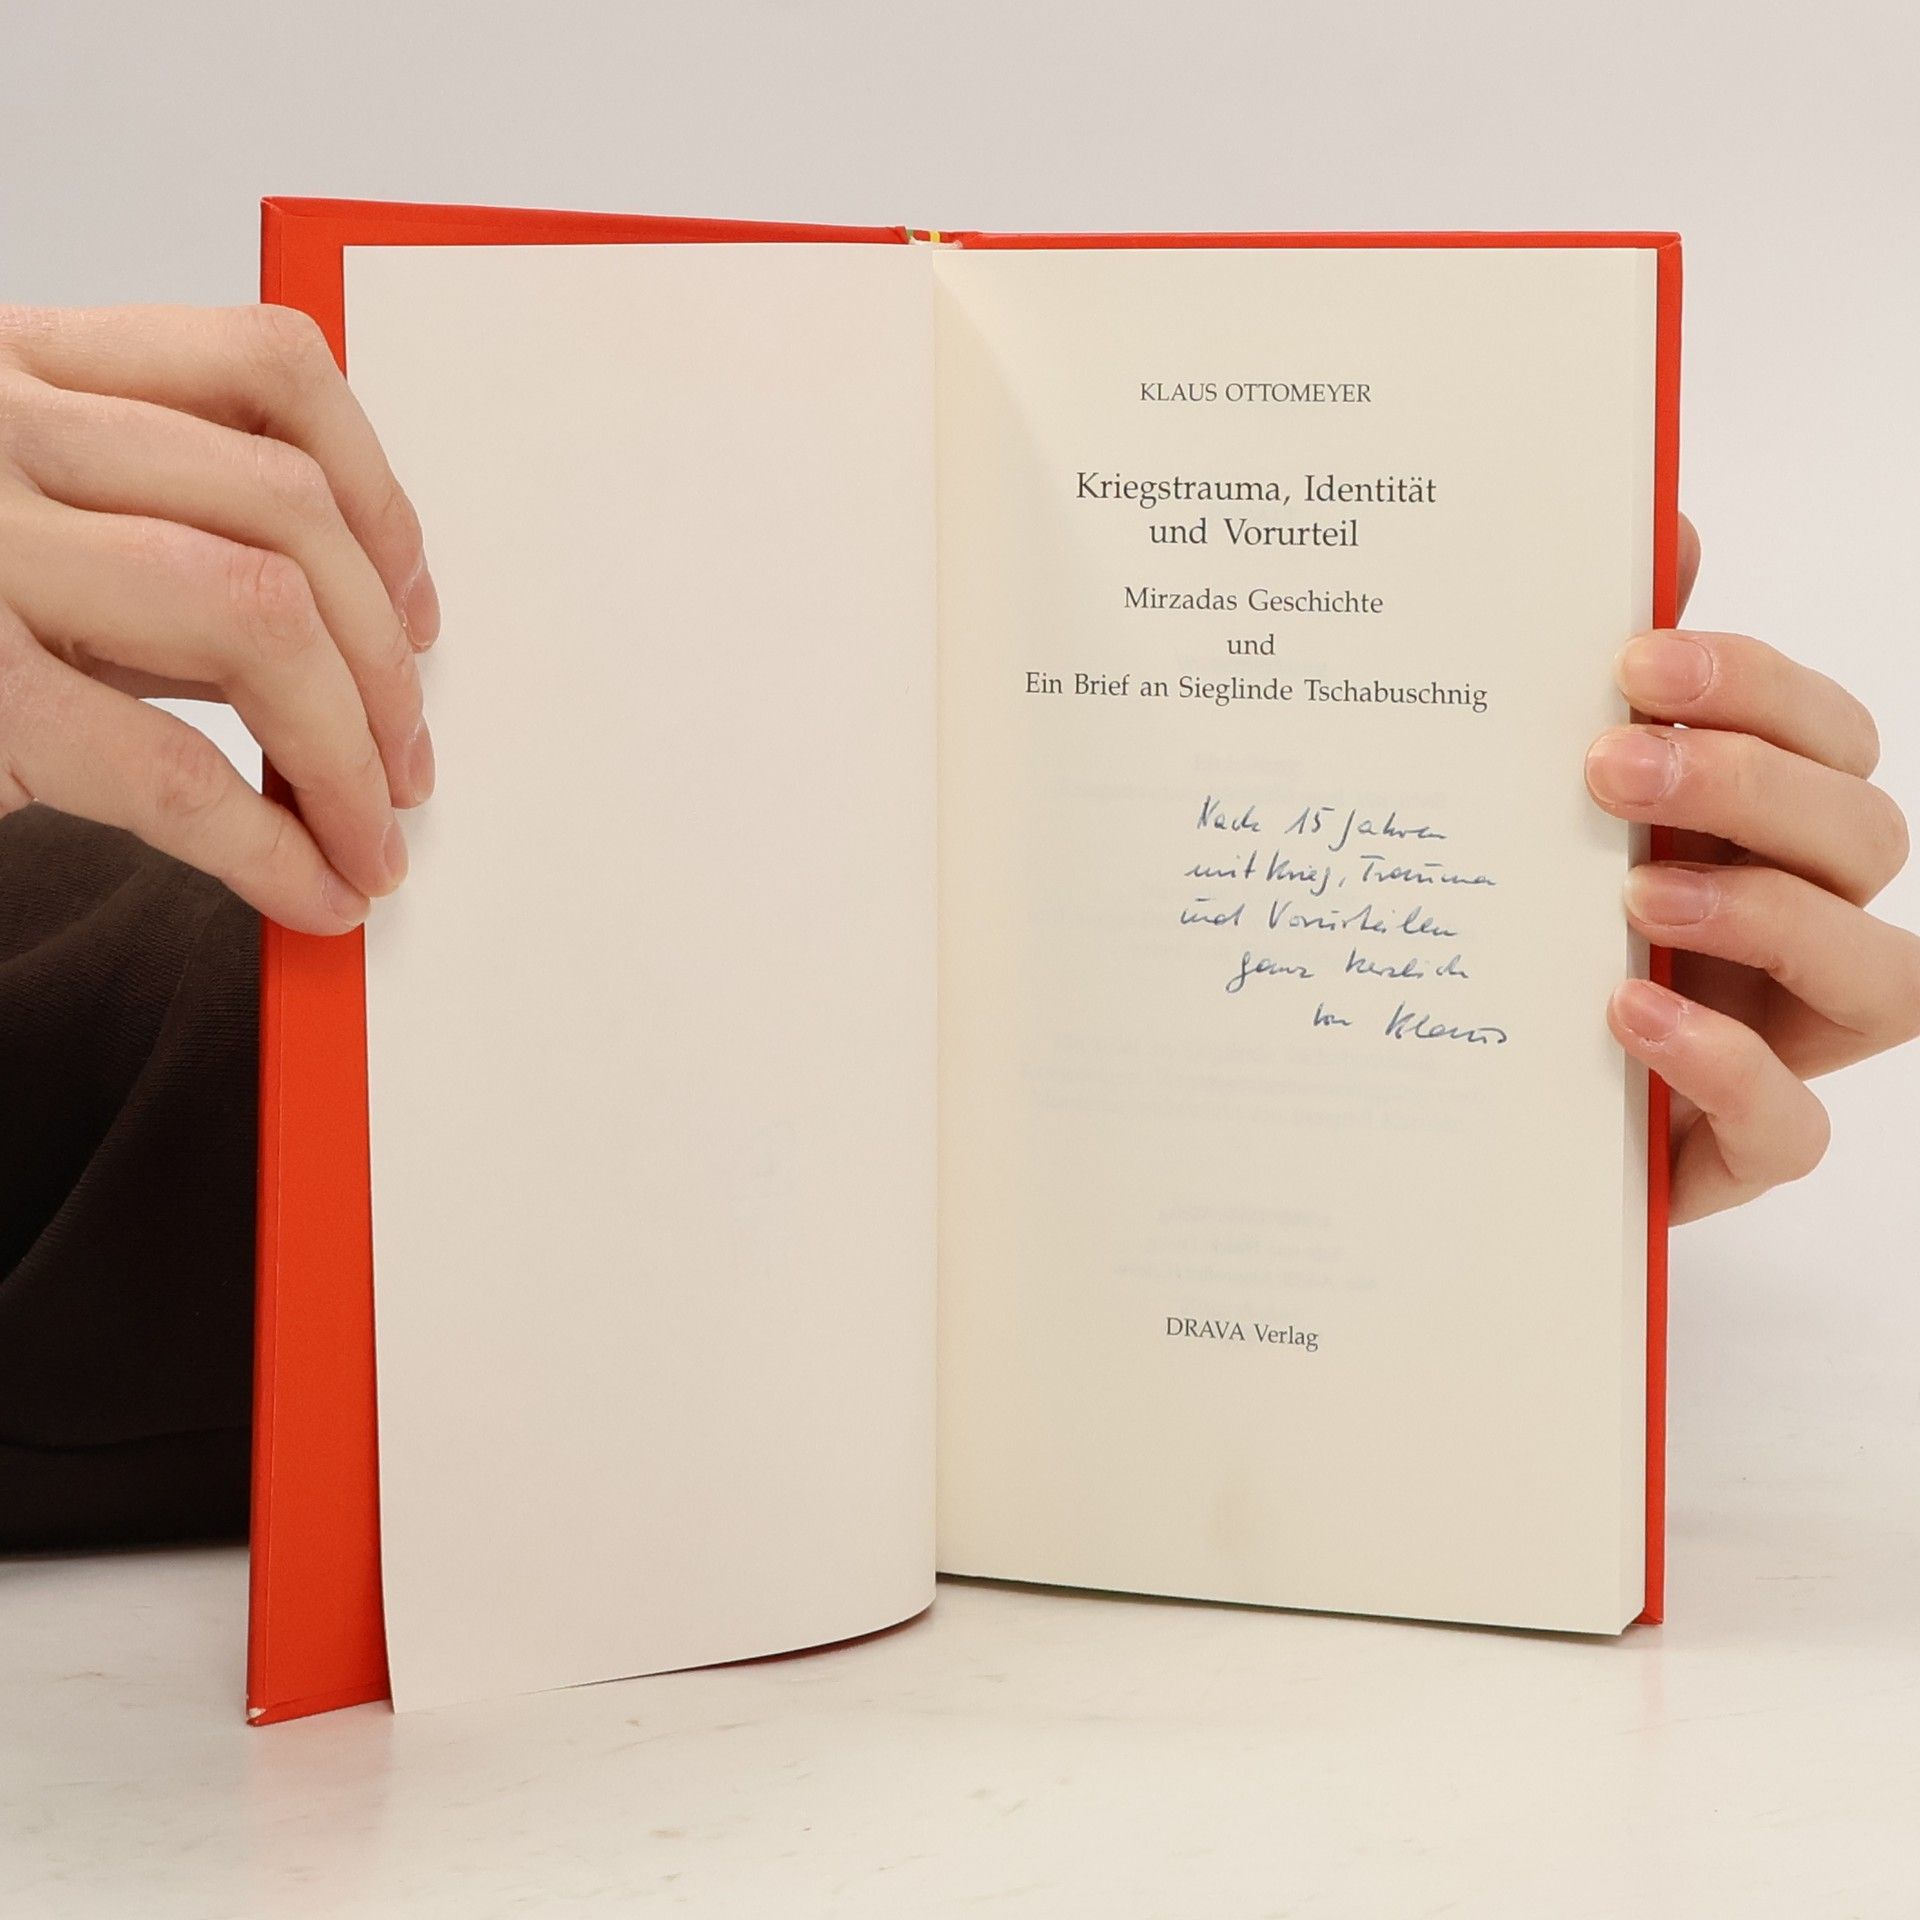 KLAUS OTTOMEYER
Kriegstrauma, Identität
und Vorurteil
Mirzadas Geschichte
und
Ein Brief an Sieglinde Tschabuschnig
Nach 15 Jahren
mit Krieg, Trauma
und Vorurteilen
ganz herzlich
von Klaus
DRAVA Verlag